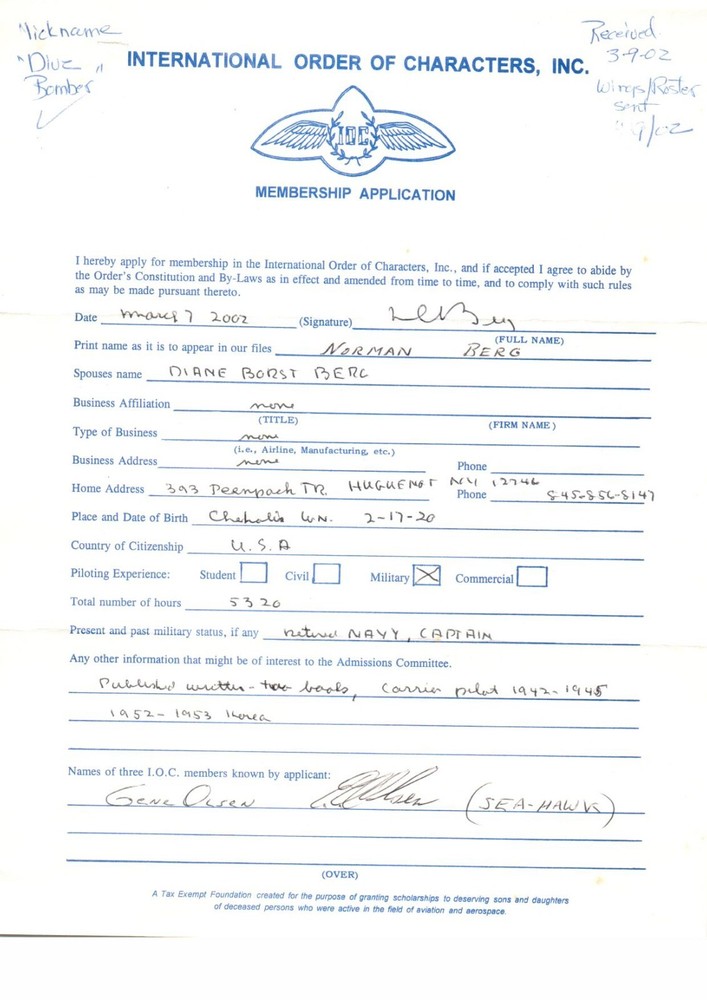 Nickname
"Dive
Bomber"
Received
3-9-02
Wings/Roster
sent
9/02
INTERNATIONAL ORDER OF CHARACTERS, INC.
IOC
MEMBERSHIP APPLICATION
I hereby apply for membership in the International Order of Characters, Inc., and if accepted I agree to abide by
the Order's Constitution and By-Laws as in effect and amended from time to time, and to comply with such rules
as may be made pursuant thereto.
Date March 7 2002 (Signature)
(FULL NAME)
Print name as it is to appear in our files NORMAN BERG
Spouses name DIANE BORST BERG
Business Affiliation none
(TITLE) (FIRM NAME)
Type of Business none
(i.e., Airline, Manufacturing, etc.)
Business Address none Phone
Home Address 393 Peenpach TR. HUGUENOT NY 12746 Phone 845-856-8147
Place and Date of Birth Chehalis WN. 2-17-20
Country of Citizenship U.S.A
Piloting Experience: Student Civil Military X Commercial
Total number of hours 5320
Present and past military status, if any retired NAVY, CAPTAIN
Any other information that might be of interest to the Admissions Committee.
Published written - two books, Carrier pilot 1942-1945
1952-1953 Korea
Names of three I.O.C. members known by applicant:
Gene Olsen (SEA-HAWK)
(OVER)
A Tax Exempt Foundation created for the purpose of granting scholarships to deserving sons and daughters
of deceased persons who were active in the field of aviation and aerospace.